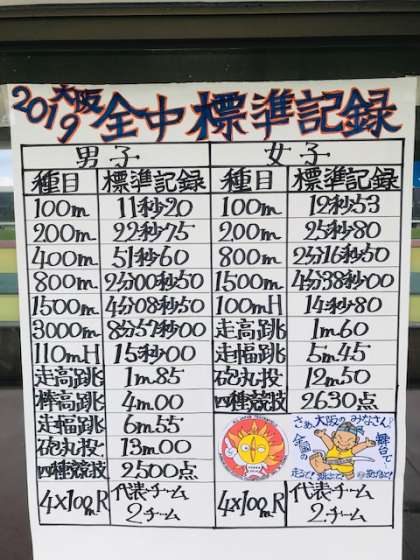 2019大阪全中標準記録
男子 女子
種目 標準記録 種目 標準記録
100m 11秒20 100m 12秒53
200m 22秒75 200m 25秒80
400m 51秒60 800m 2分16秒50
800m 2分00秒50 1500m 4分38秒00
1500m 4分08秒50 100mH 14秒80
3000m 8分57秒00 走高跳 1m60
110mH 15秒00 走幅跳 5m45
走高跳 1m85 砲丸投 12m50
棒高跳 4m00 四種競技 2630点
走幅跳 6m55
砲丸投 13m00
四種競技 2500点
さあ、大阪のみなさん
全国の
舞台で
4×100mR 代表・チーム 4×100mR 代表・チーム
2・チーム 2・チーム